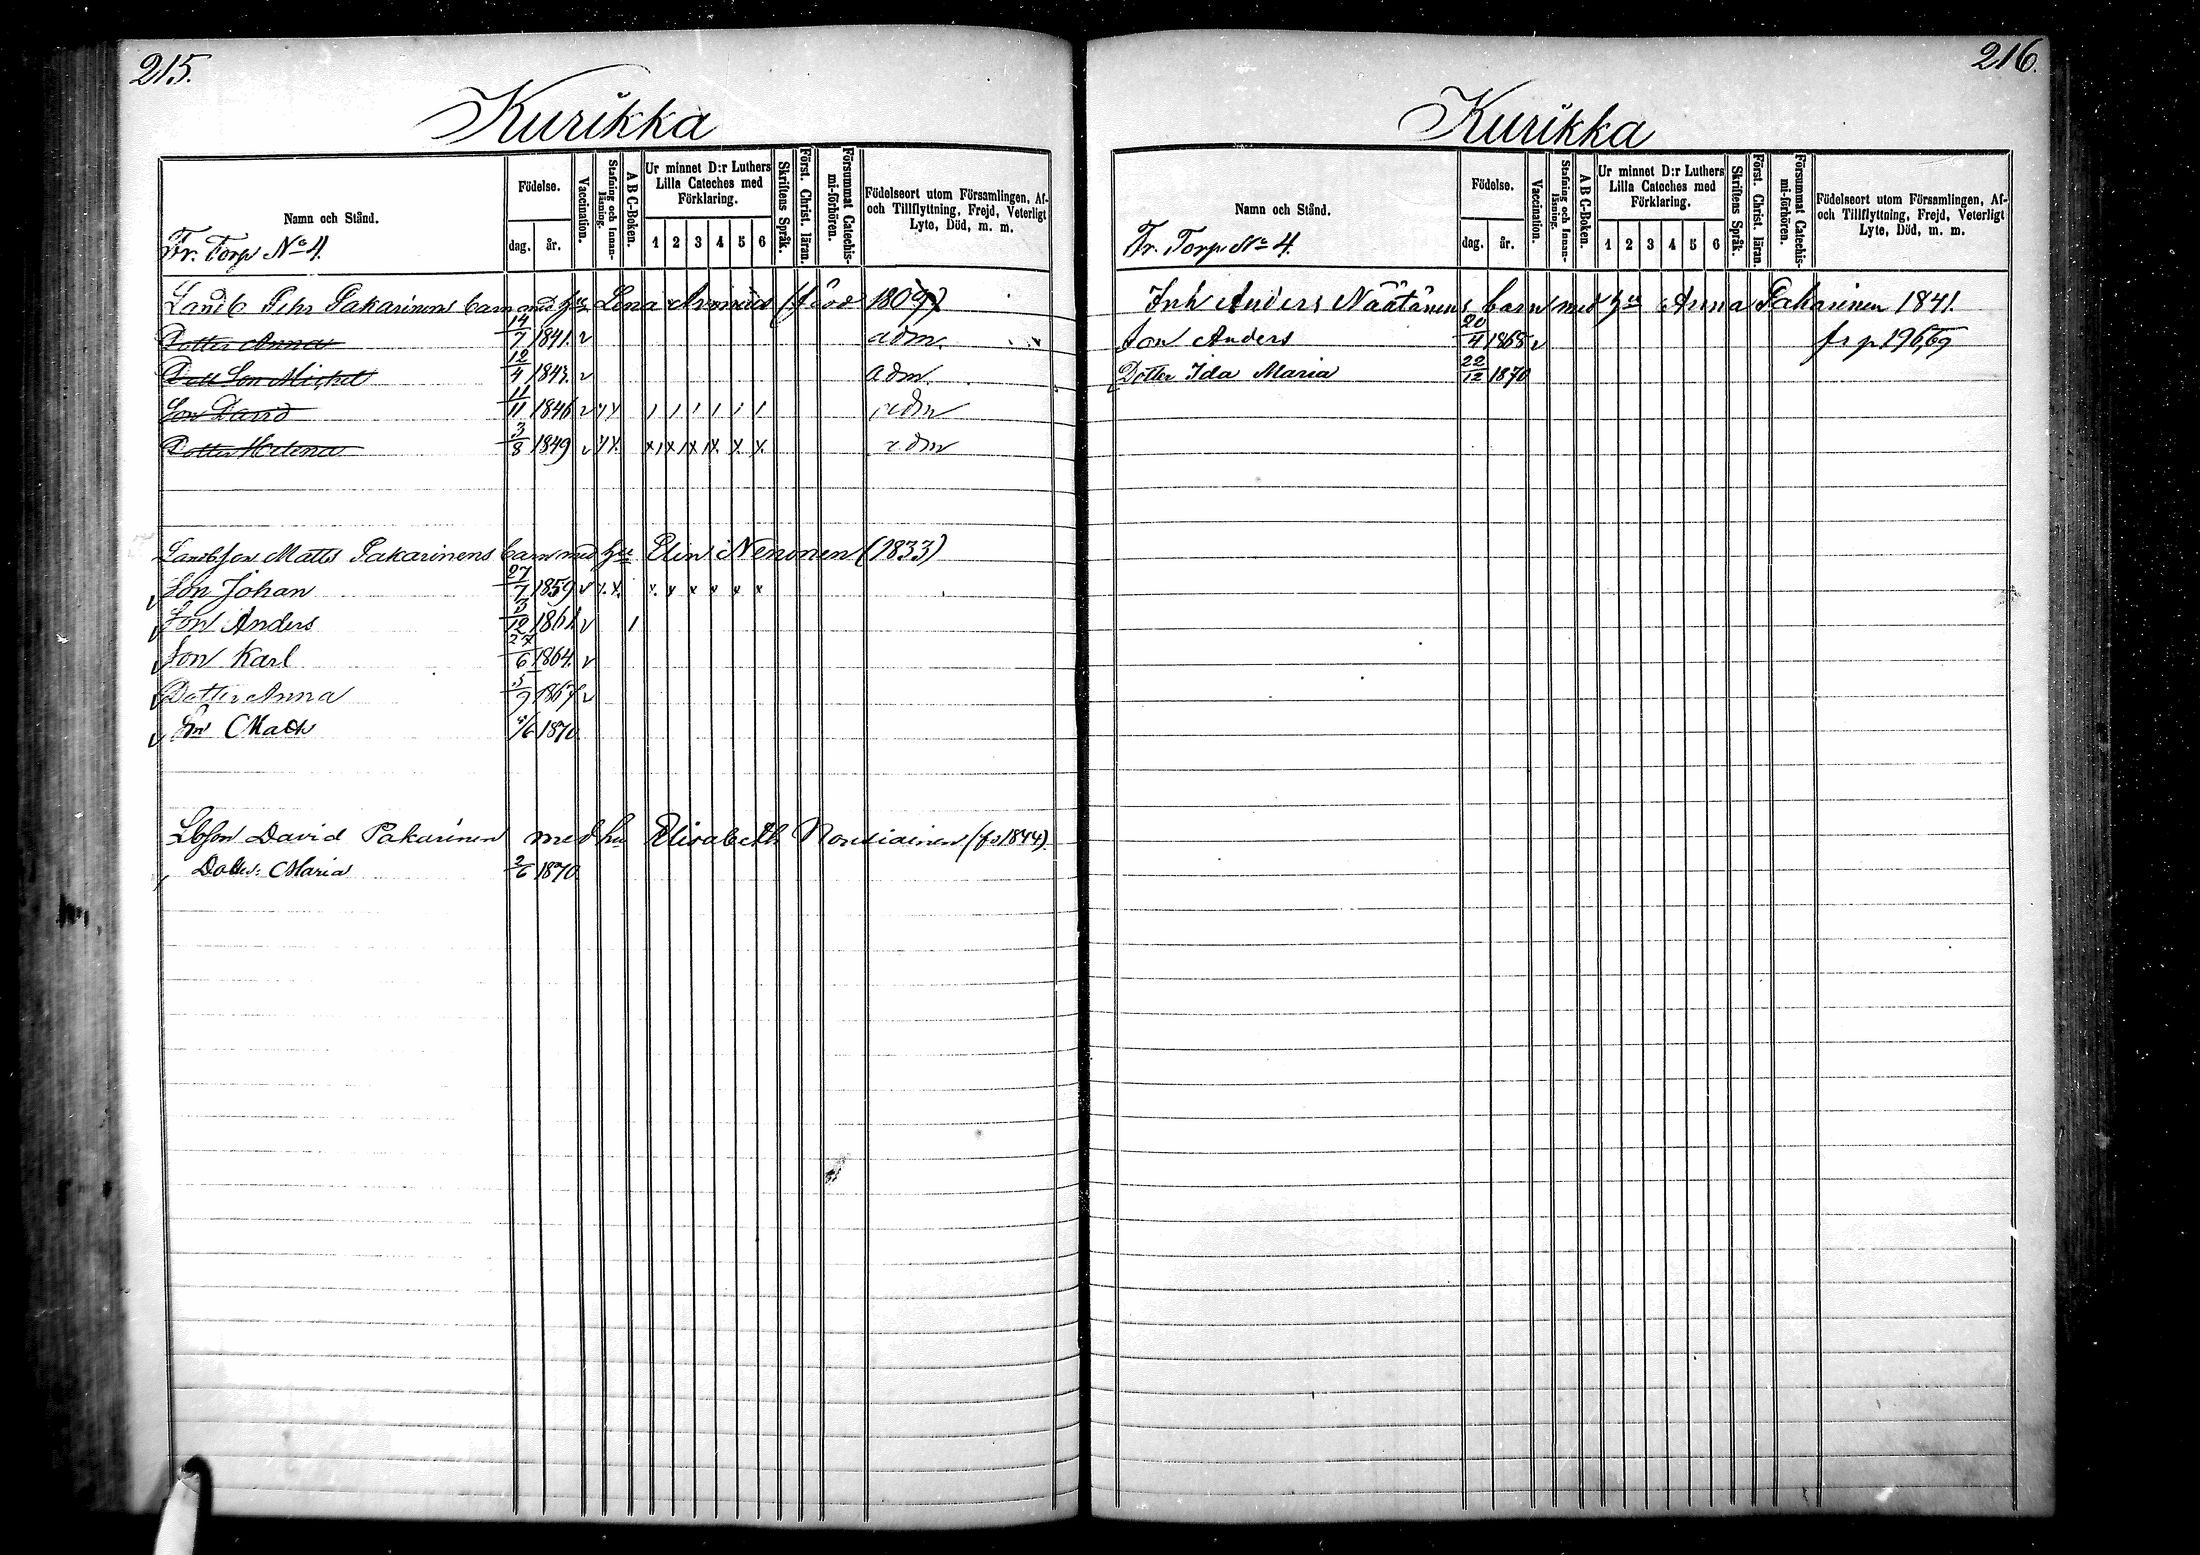 215.
Kurikka
Namn och Stånd.
Födelse.
dag.
år.
Vaccination.
Stafning och Innan-läsning.
A B C-Boken.
Ur minnet D:r Luthers
Lilla Cateches med
Förklaring.
1 2 3 4 5 6
Skriftens Språk.
Först. Christ. läran.
Försummat Catechis-
mi-förhören.
Födelseort utom Församlingen, Af-
och Tillflyttning, Frejd, Veterligt
Lyte, Död, m. m.
Fr. Torp No 4.
Landb Pehr Pakarinens barn med hu Lena född 1809
Dotter Anna 14/7 1841. v adm.
Son Michel 12/4 184 v adm.
Son David 11/11 1846 v adm
Dotter Helena 3/8 1849 v x x x x x x adm
Landbson Matts Pakarinens barn med hu Elin Nenonen (1833)
Son Johan 27/7 1859 v x x x x x x
Son Anders 3/12 1861 v 1
Son Karl 27/6 1864. v
Dotter Anna 5/9 1867 v
Son Matts /6 1870
Lbson David Pakarinen med hu Elisabeth (fd 1844).
Dotter: Maria 2/6 1870
216.
Kurikka
Namn och Stånd.
Födelse.
dag.
år.
Vaccination.
Stafning och Innan-läsning.
A B C-Boken.
Ur minnet D:r Luthers
Lilla Cateches med
Förklaring.
1 2 3 4 5 6
Skriftens Språk.
Först. Christ. läran.
Försummat Catechis-
mi-förhören.
Födelseort utom Församlingen, Af-
och Tillflyttning, Frejd, Veterligt
Lyte, Död, m. m.
Fr. Torp No 4.
Inh Anders Näätänens barn med hu Anna Pakarinen 1841.
Son Anders 20/4 1868 v fr p 196,69
Dotter Ida Maria 22/12 1870